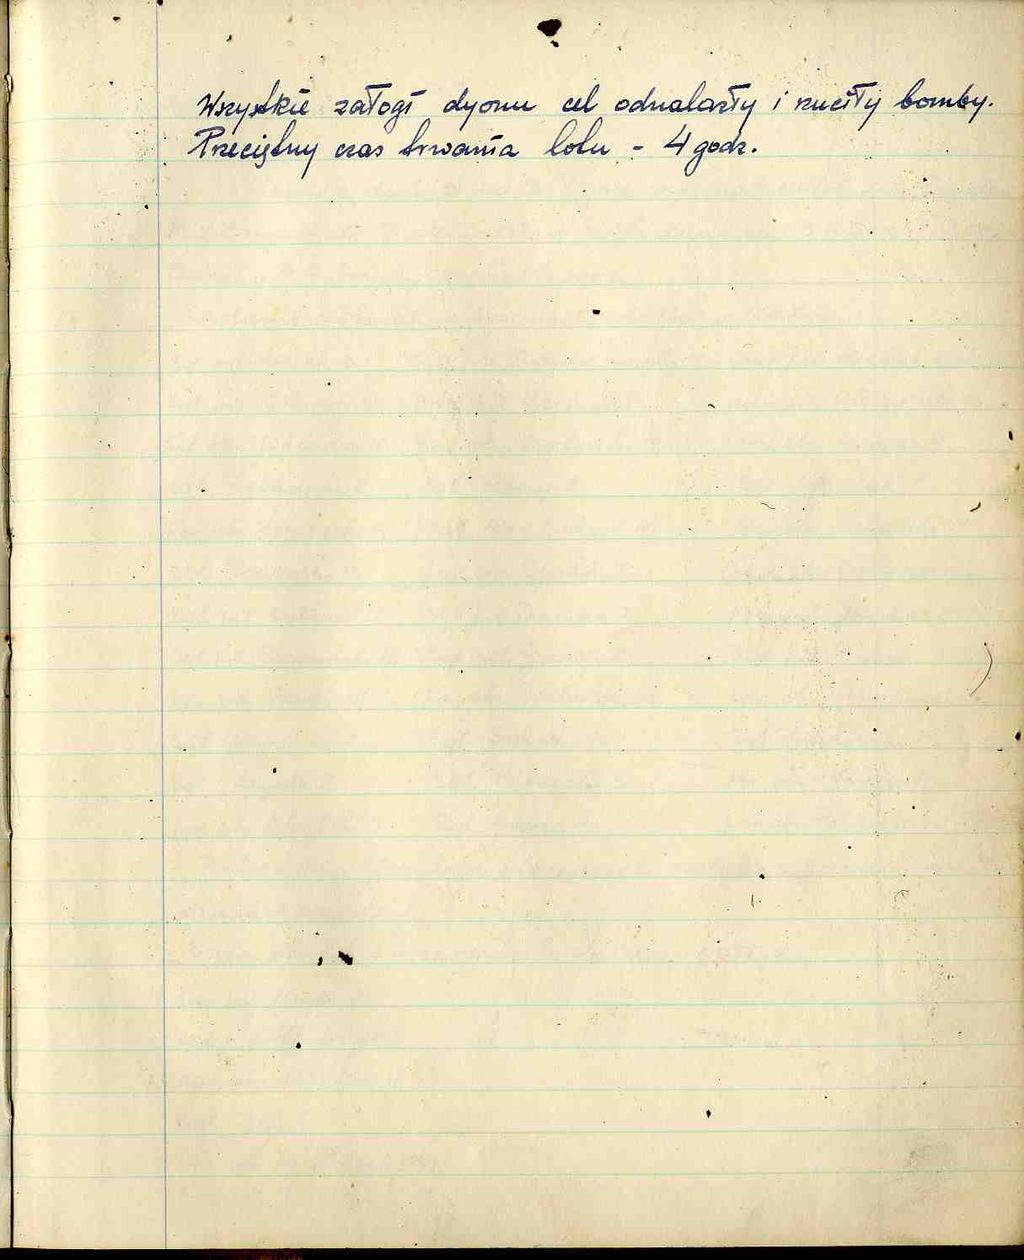 Wszystkie załogi dyonu cel odnalazły i rzuciły bomby.
Przeciętny czas trwania lotu - 4 godz.